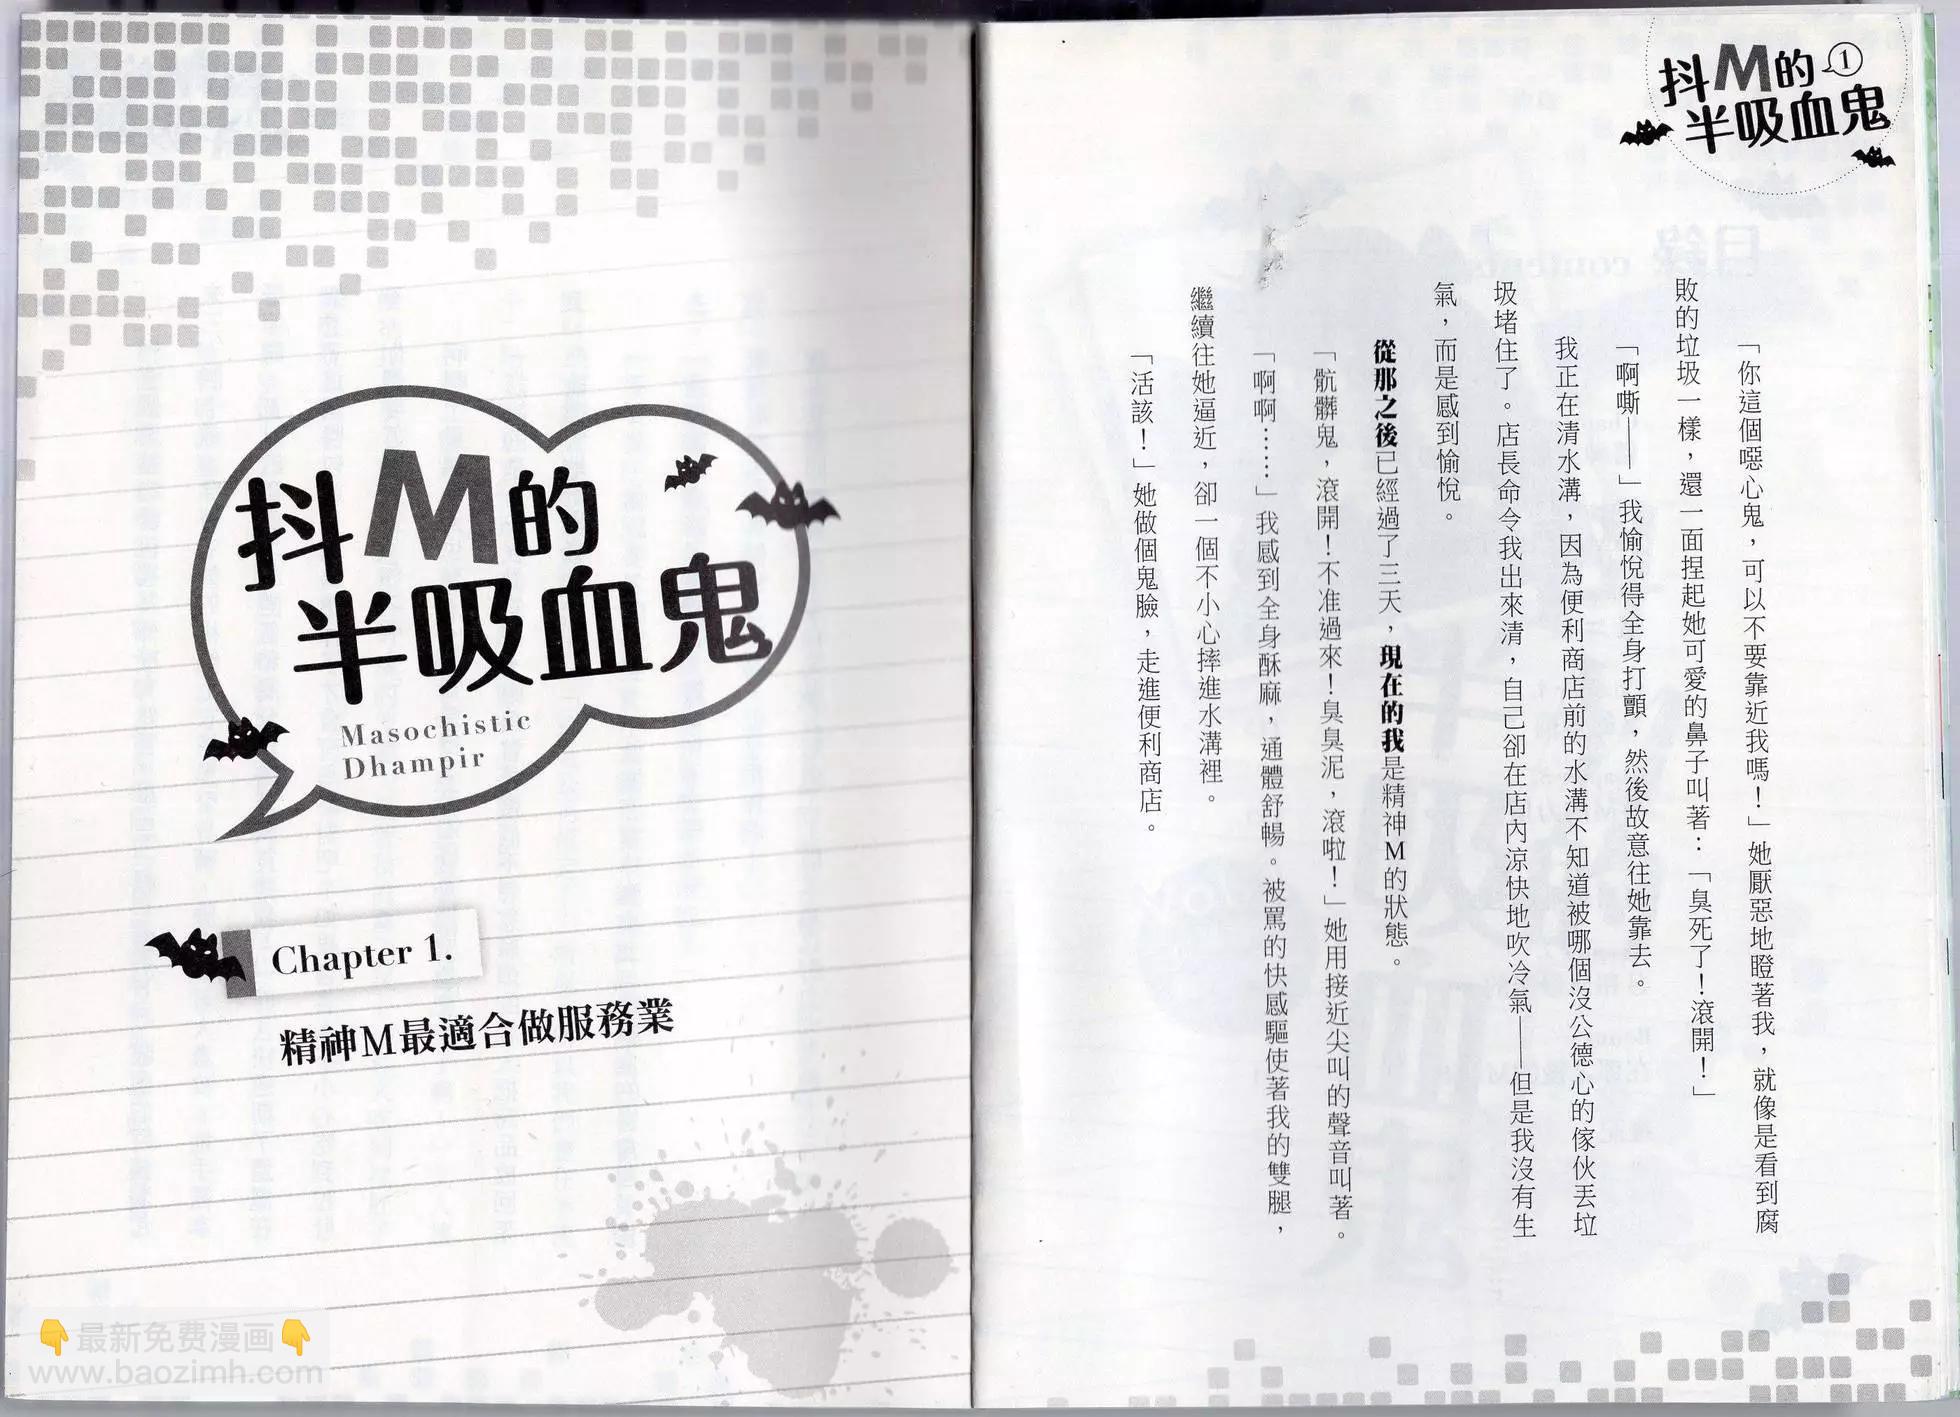 抖M的
半吸血鬼
1
「你這個噁心鬼，可以不要靠近我嗎！」她厭惡地瞪著我，就像是看到腐
敗的垃圾一樣，還一面捏起她可愛的鼻子叫著：「臭死了！滾開！」
「啊嘶——」我愉悅得全身打顫，然後故意往她靠去。
我正在清水溝，因為便利商店前的水溝不知道被哪個沒公德心的傢伙丟垃
圾堵住了。店長命令我出來清，自己卻在店內涼快地吹冷氣——但是我沒有生
氣，而是感到愉悅。
從那之後已經過了三天，現在的我是精神M的狀態。
「骯髒鬼，滾開！不准過來！臭臭泥，滾啦！」她用接近尖叫的聲音叫著。
「啊啊……」我感到全身酥麻，通體舒暢。被罵的快感驅使著我的雙腿，
繼續往她逼近，卻一個不小心摔進水溝裡。
「活該！」她做個鬼臉，走進便利商店。
抖M的
半吸血鬼
Masochistic
Dhampir
Chapter 1.
精神M最適合做服務業
👇最新免费漫画👇
www.baozimh.com